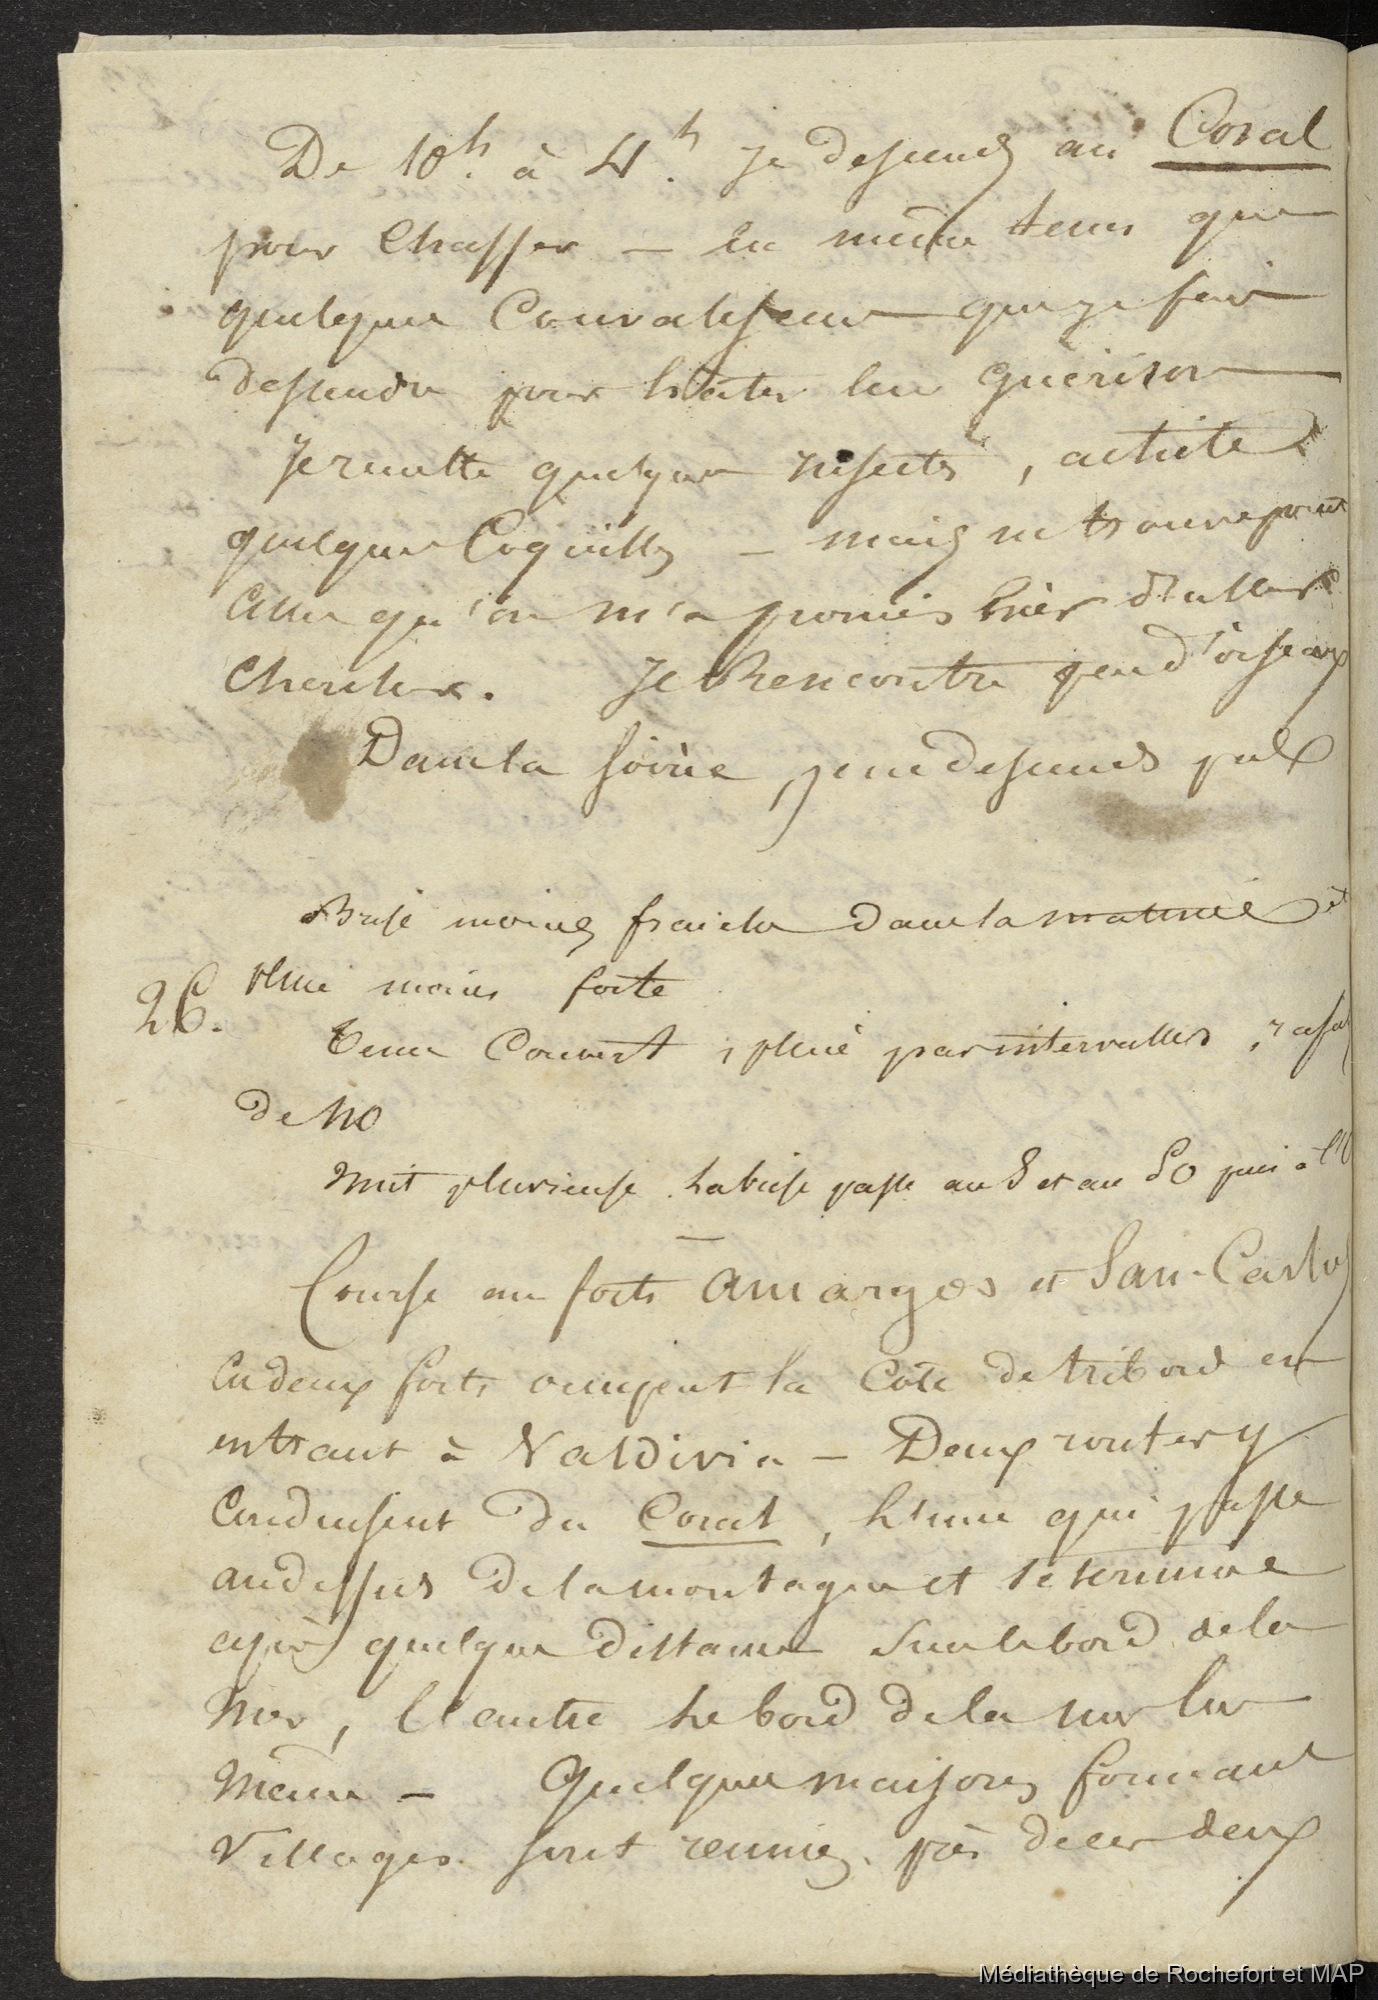 De 10h. à 4h. je descends au Coral
pour Chasser — En même tems que
quelques Convalescens que je fais
descendre pour hâter leur guérison
Je récolte quelques insectes, achète
quelques Coquilles — mais ne trouve point
Celles qu'on m'a promis hier d'aller
Chercher. Je Rencontre peu d'oiseaux
Dans la soirée, je ne descends pas
Brise moins fraiche dans la matinée et
pluie moins forte
26.
Tems Couvert, pluie par intervalles,
de NO
Nuit pluvieuse. La brise passe au S et au SO puis à
Course aux forts Amargos et San-Carlos
Ces deux forts occupent la Côte de tribord en
entrant à Valdivia — Deux routes y
Conduisent du Coral, L'une qui passe
au dessus de la montagne et se termine
après quelque distance sur le bord de la
Mer, L'autre Le bord de la mer lui
Même — Quelques maisons formant
Villages sont réunies près de ces deux
Médiathèque de Rochefort et MAP